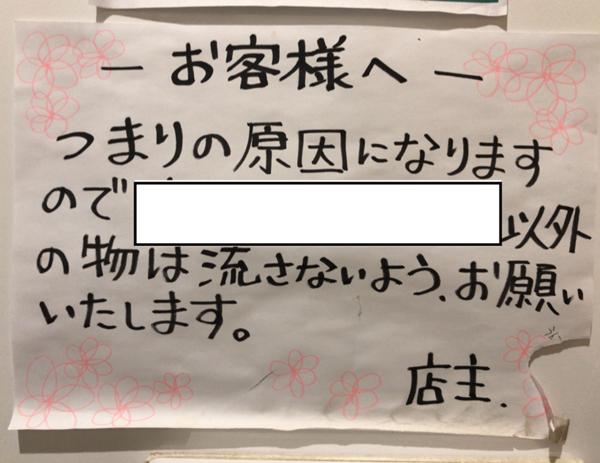 ― お客様へ ―
つまりの原因になります
ので 以外
の物は流さないよう、お願い
いたします。
店主.